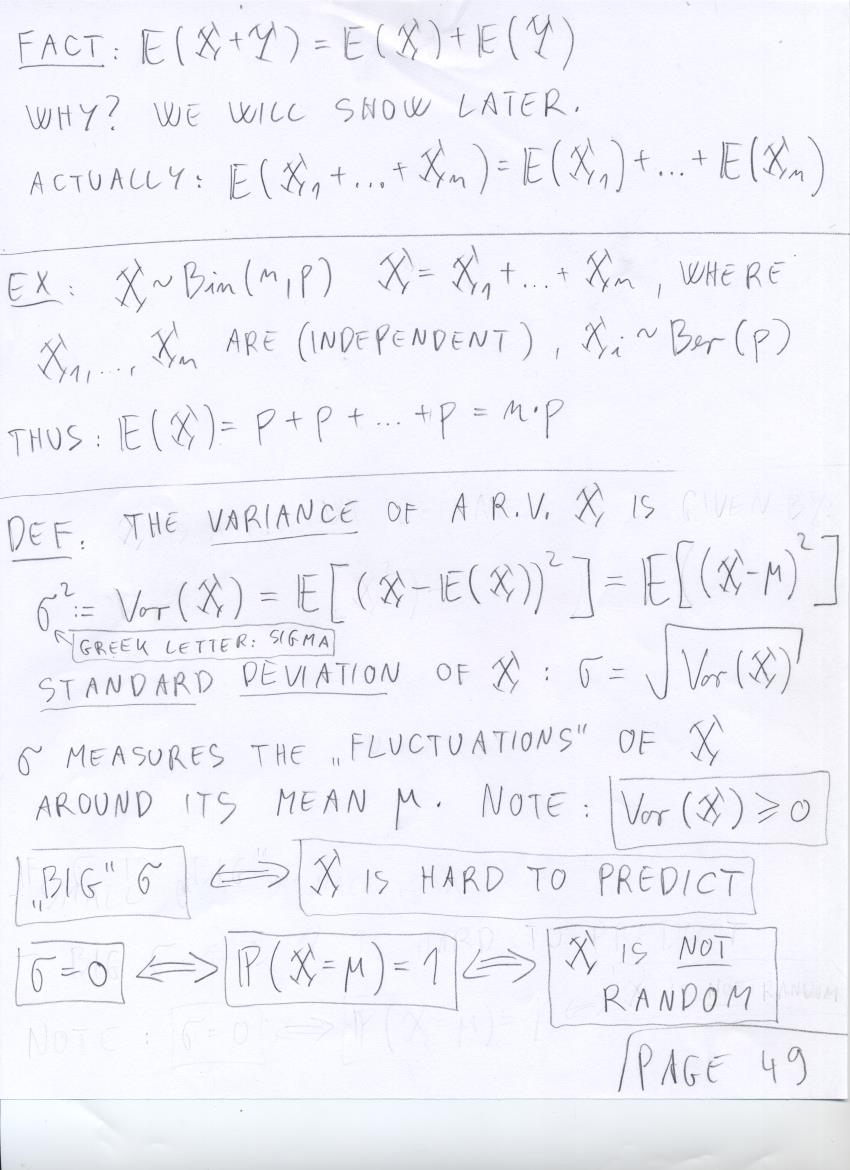 FACT: 𝔼(X+Y) = 𝔼(X)+𝔼(Y)
WHY? WE WILL SHOW LATER.
ACTUALLY: 𝔼(X₁+...+Xₙ) = 𝔼(X₁)+...+𝔼(Xₙ)
EX: X ~ Bin(n,p) X = X₁+...+Xₙ, WHERE
X₁,...,Xₙ ARE (INDEPENDENT), Xᵢ ~ Ber(p)
THUS: 𝔼(X) = p + p + ... + p = n·p
DEF: THE VARIANCE OF A R.V. X IS GIVEN BY:
σ² := Var(X) = 𝔼[(X-𝔼(X))²] = 𝔼[(X-μ)²]
GREEK LETTER: SIGMA
STANDARD DEVIATION OF X : σ = √Var(X)
σ MEASURES THE „FLUCTUATIONS" OF X
AROUND ITS MEAN μ. NOTE: Var(X) ⩾ 0
„BIG" σ ⟺ X IS HARD TO PREDICT
σ=0 ⟺ ℙ(X=μ)=1 ⟺ X IS NOT
RANDOM
PAGE 49